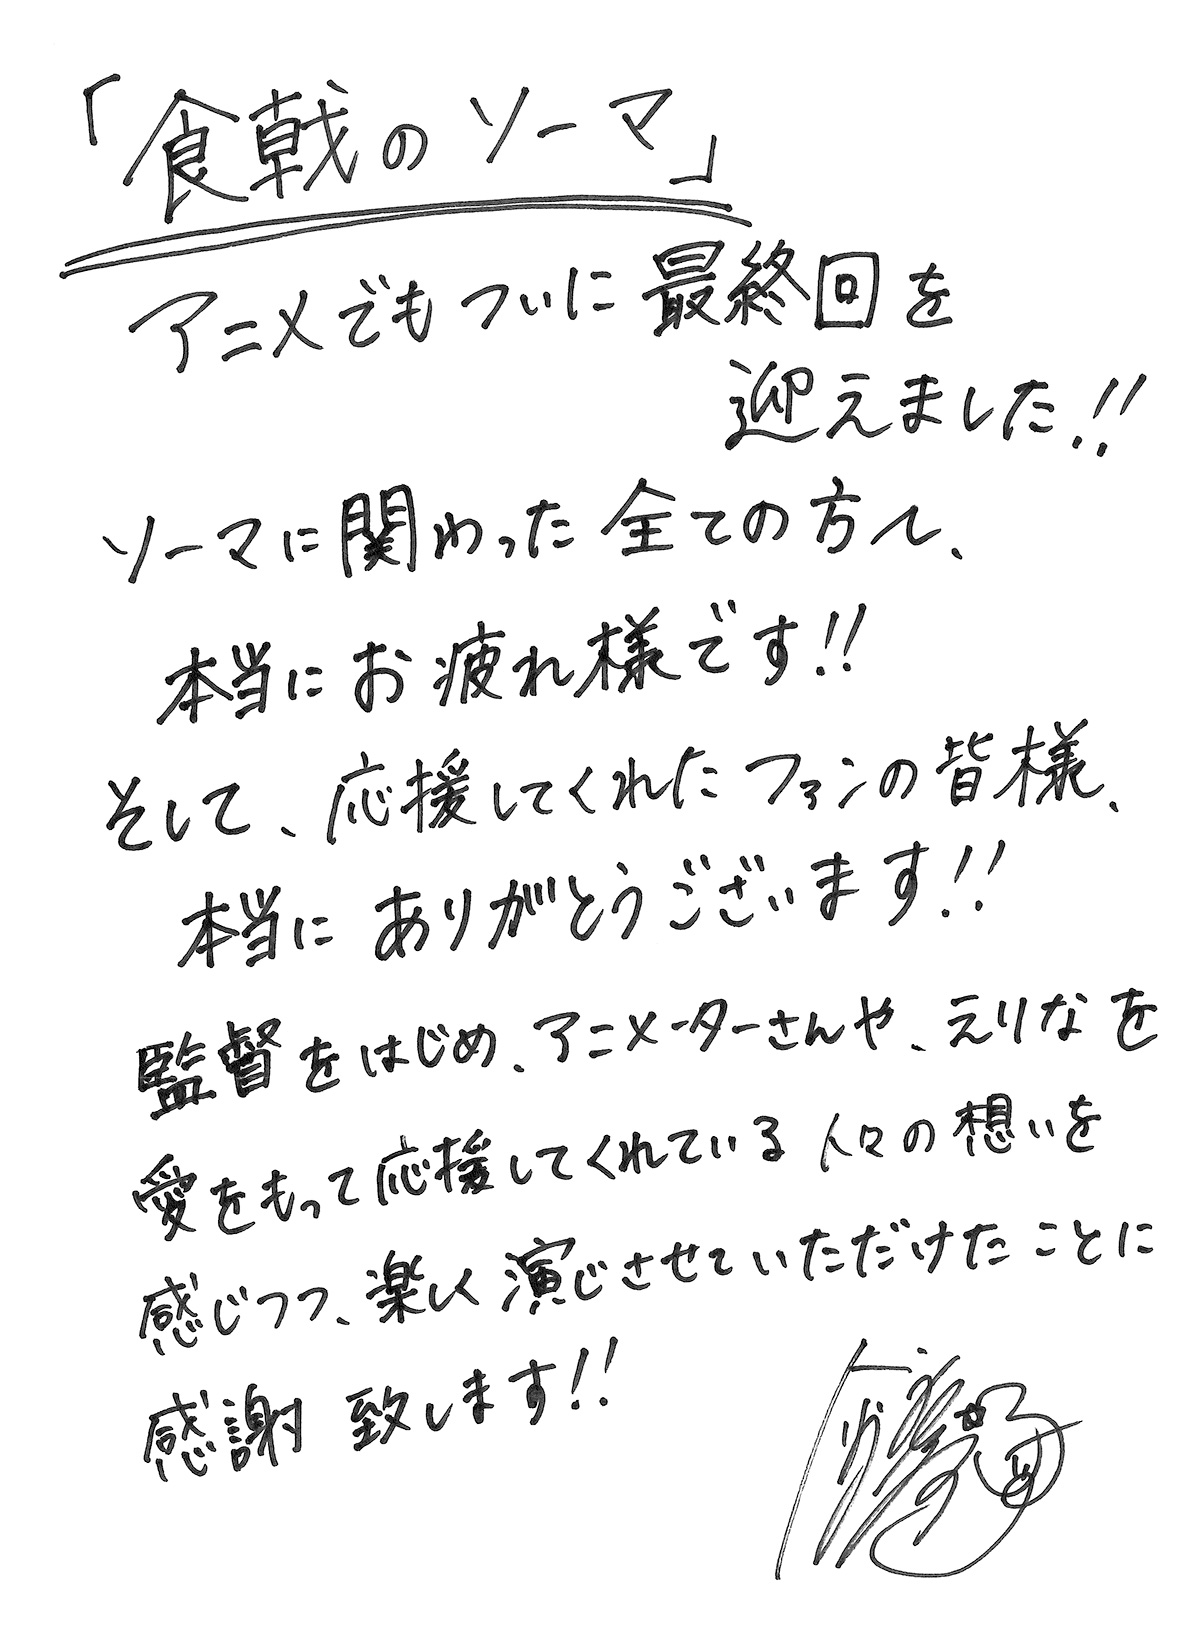 「食戟のソーマ」
アニメでもついに最終回を
迎えました!!
ソーマに関わった全ての方へ、
本当にお疲れ様です!!
そして、応援してくれたファンの皆様、
本当にありがとうございます!!
監督をはじめ、アニメーターさんや、えりなを
愛をもって応援してくれている人々の想いを
感じつつ、楽しく演じさせていただけたことに
感謝致します!!